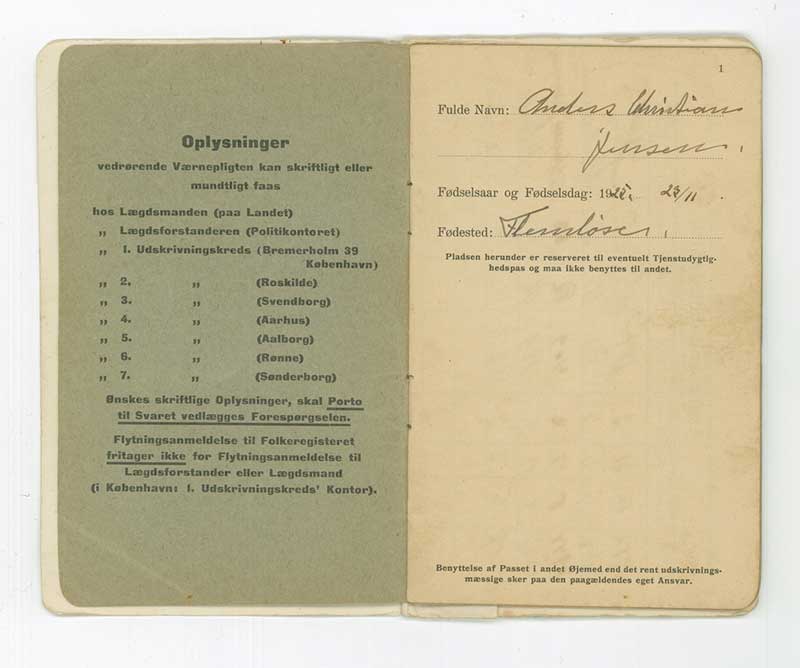 Oplysninger
vedrørende Værnepligten kan skriftligt eller
mundtligt faas
hos Lægdsmanden (paa Landet)
„ Lægdsforstanderen (Politikontoret)
„ 1. Udskrivningskreds (Bremerholm 39
København)
„ 2. „ (Roskilde)
„ 3. „ (Svendborg)
„ 4. „ (Aarhus)
„ 5. „ (Aalborg)
„ 6. „ (Rønne)
„ 7. „ (Sønderborg)
Ønskes skriftlige Oplysninger, skal Porto
til Svaret vedlægges Forespørgselen.
Flytningsanmeldelse til Folkeregisteret
fritager ikke for Flytningsanmeldelse til
Lægdsforstander eller Lægdsmand
(i København: 1. Udskrivningskreds' Kontor).
1
Fulde Navn: Anders Christian
Jensen.
Fødselsaar og Fødselsdag: 19
Fødested: Flemløse.
Pladsen herunder er reserveret til eventuelt Tjenstudygtig-
hedspas og maa ikke benyttes til andet.
Benyttelse af Passet i andet Øjemed end det rent udskrivnings-
mæssige sker paa den paagældendes eget Ansvar.